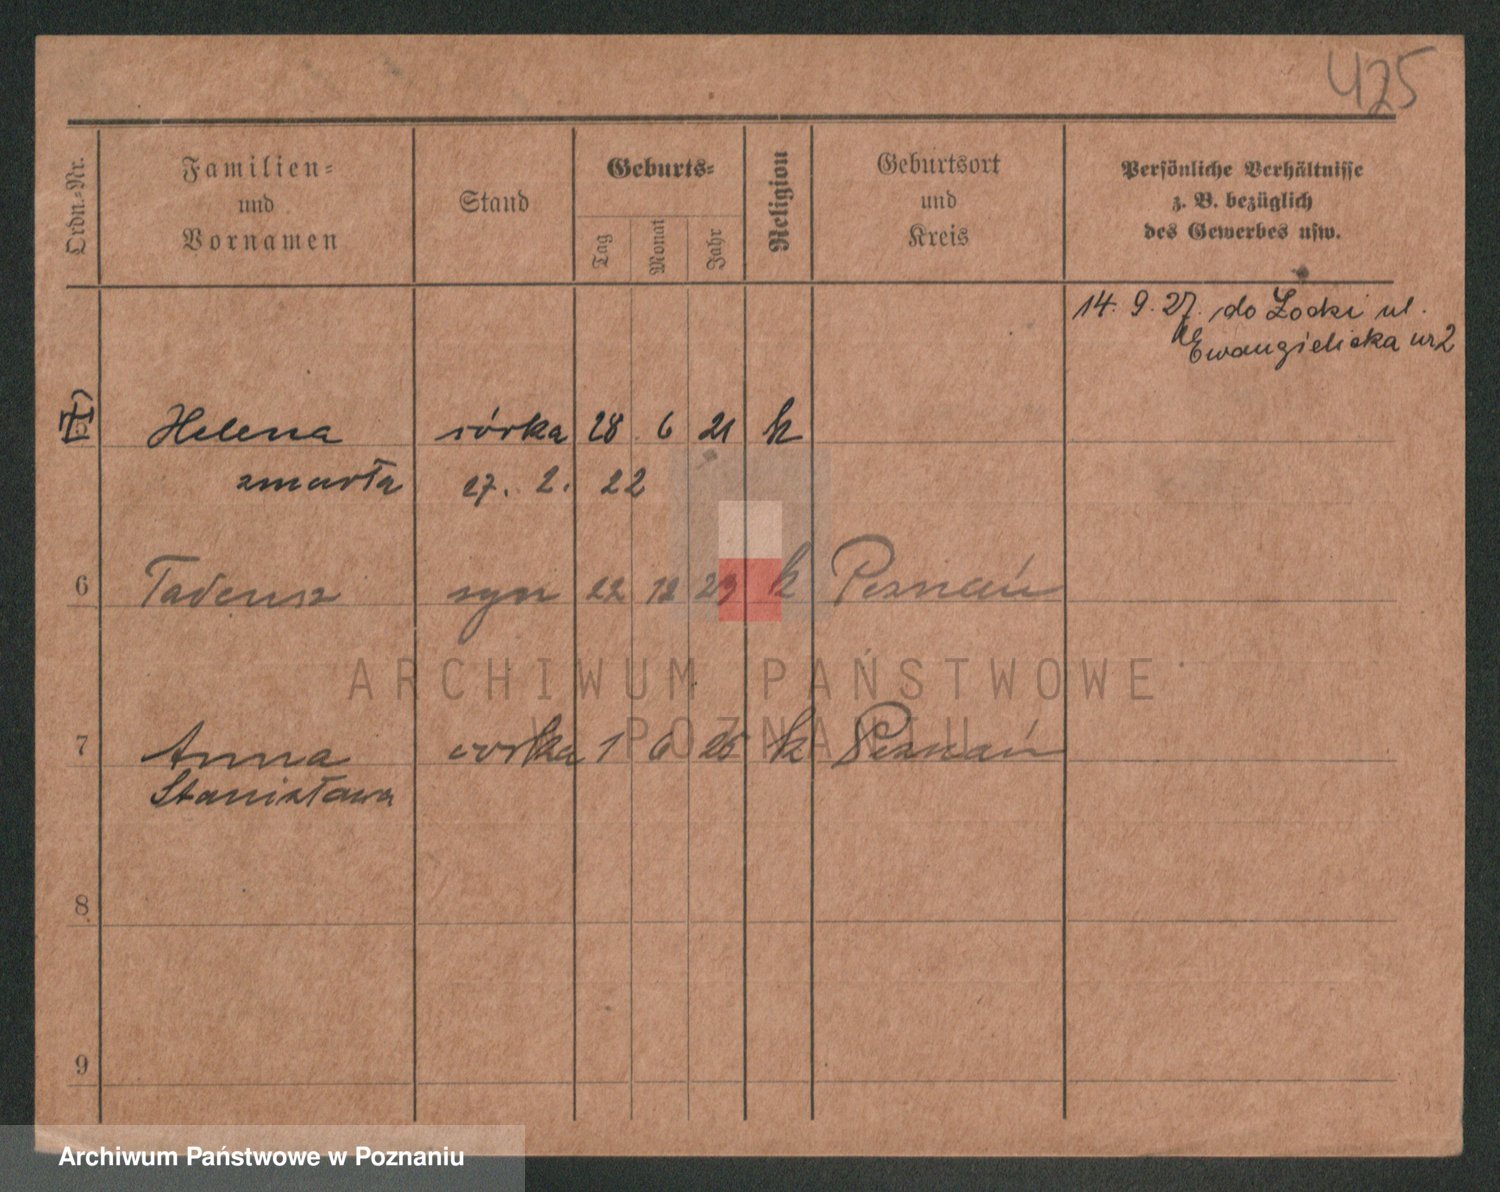 425
Ordn.-Nr.
Familien-
und
Vornamen
Stand
Geburts-
Tag
Monat
Jahr
Religion
Geburtsort
und
Kreis
Persönliche Verhältnisse
z. B. bezüglich
des Gewerbes usw.
14. 9. 27. do Łodzi ul.
Ewangielicka nr 2
Helena córka 28 6 21 k
zmarła 27. 2. 22
6 Tadeusz syn 22 12 23 k Poznań
ARCHIWUM PAŃSTWOWE
W POZNANIU
7 Anna córka 1 6 26 k Poznań
Stanisława
8
9
Archiwum Państwowe w Poznaniu